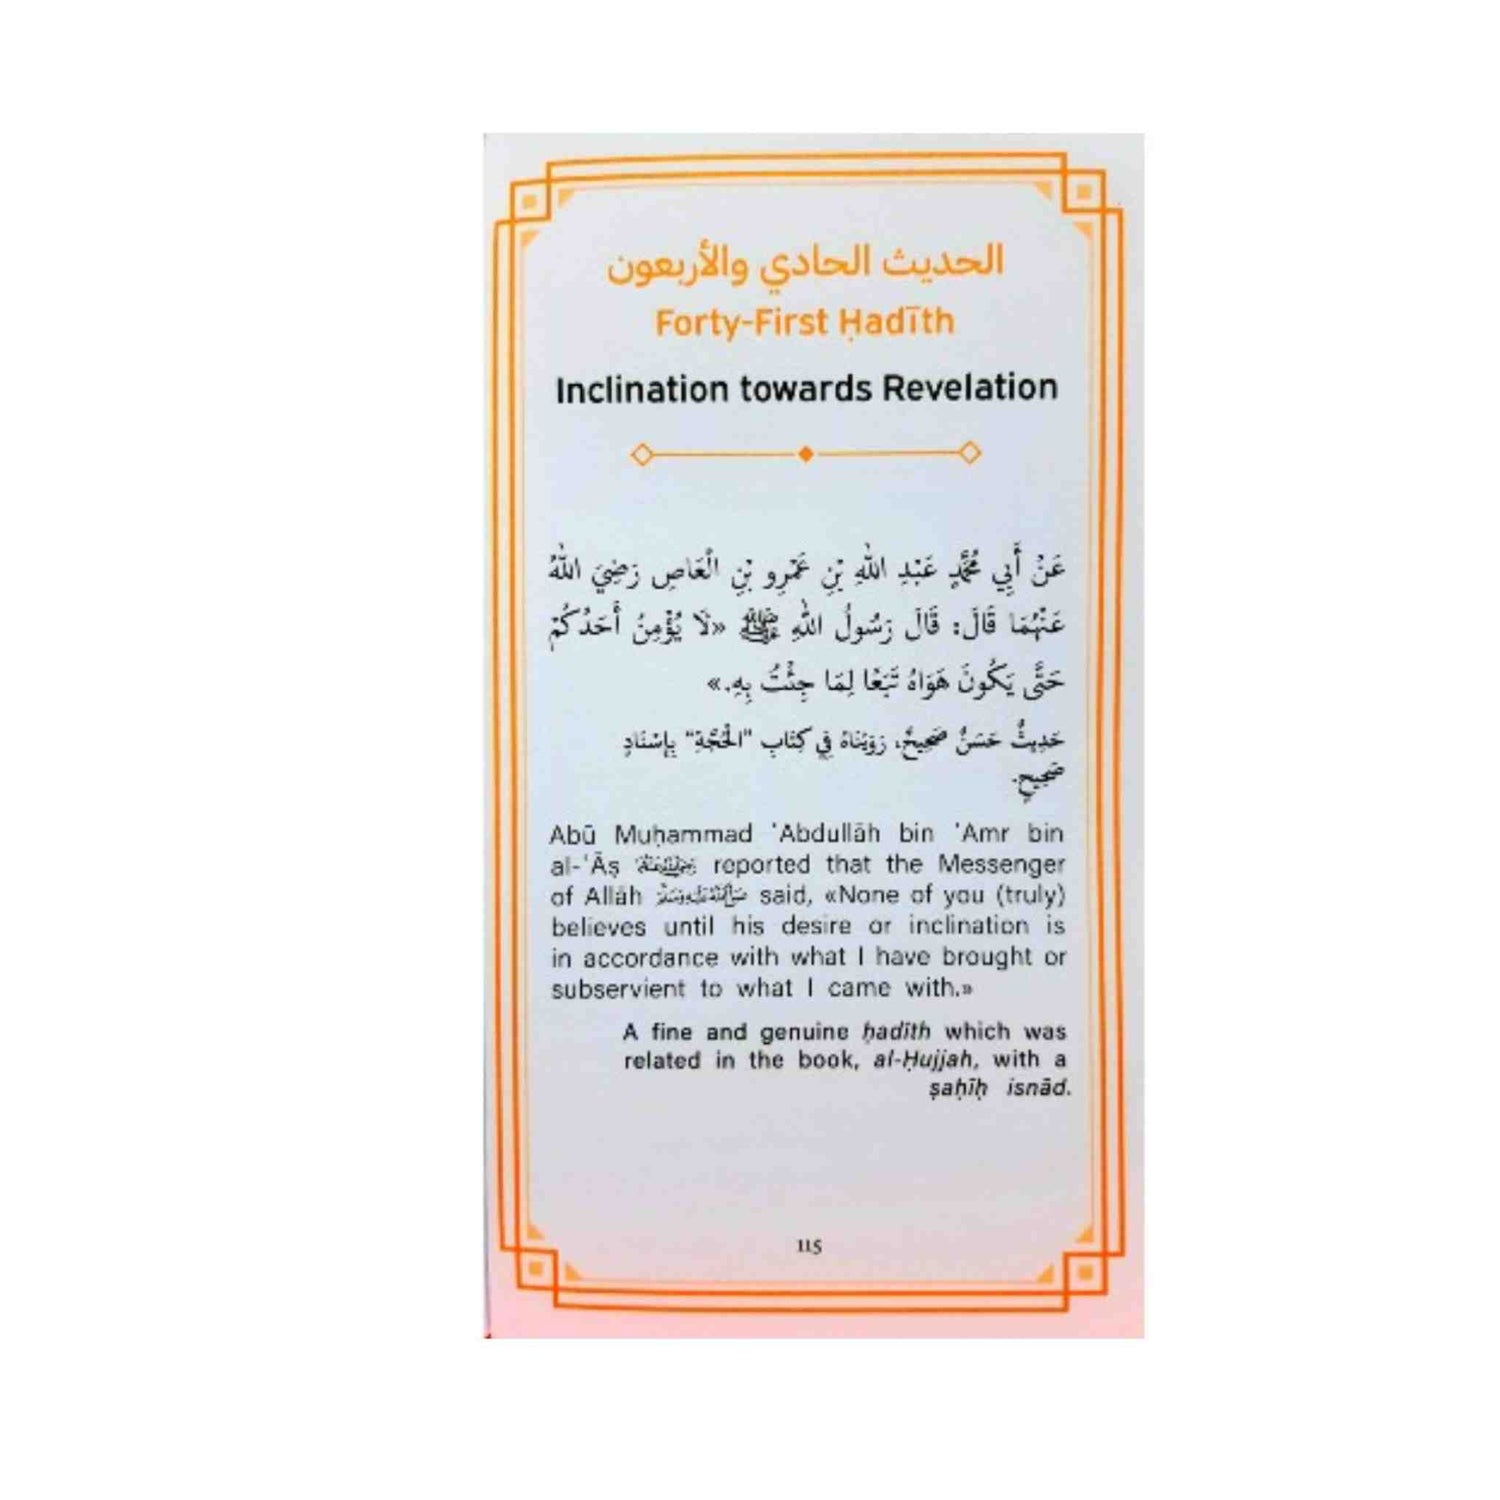 الحديث الحادي والأربعون
Forty-First Ḥadīth
Inclination towards Revelation
عَنْ أَبِي مُحَمَّدٍ عَبْدِ اللَّهِ بْنِ عَمْرِو بْنِ الْعَاصِ رَضِيَ اللَّهُ
عَنْهُمَا قَالَ: قَالَ رَسُولُ اللَّهِ ﷺ «لَا يُؤْمِنُ أَحَدُكُمْ
حَتَّى يَكُونَ هَوَاهُ تَبَعًا لِمَا جِئْتُ بِهِ.»
حَدِيثٌ حَسَنٌ صَحِيحٌ، رَوَيْنَاهُ فِي كِتَابِ "الْحُجَّةِ" بِإِسْنَادٍ
صَحِيحٍ.
Abū Muḥammad ʿAbdullāh bin ʿAmr bin
al-ʿĀṣ reported that the Messenger
of Allāh ﷺ said, «None of you (truly)
believes until his desire or inclination is
in accordance with what I have brought or
subservient to what I came with.»
A fine and genuine ḥadīth which was
related in the book, al-Ḥujjah, with a
ṣaḥīḥ isnād.
115